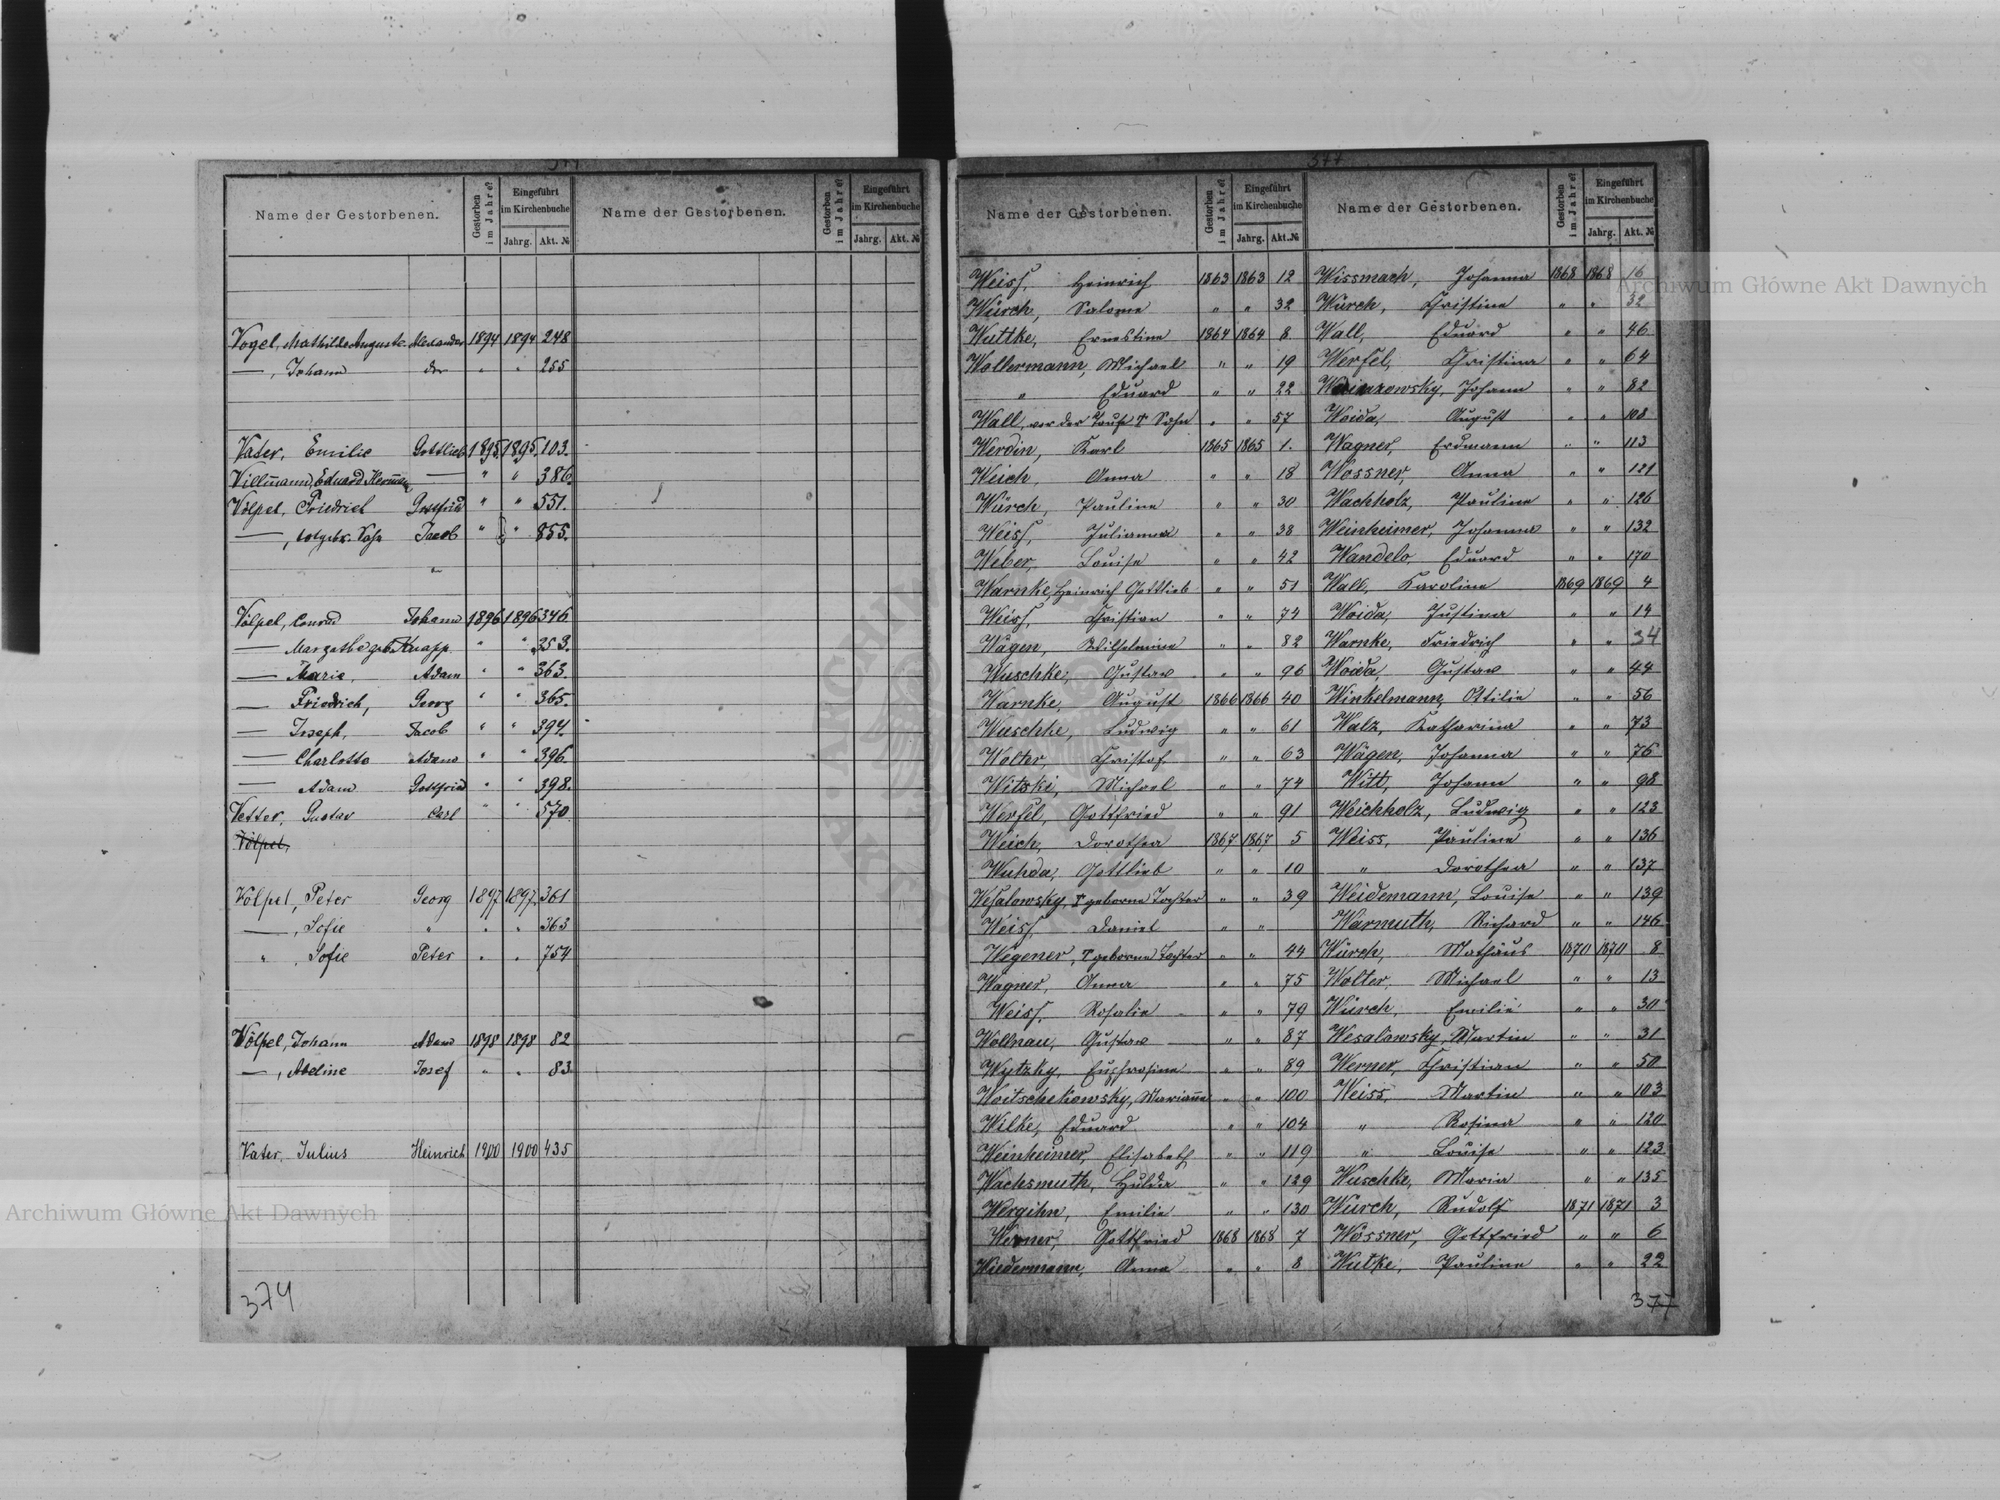 Name der Gestorbenen. Gestorben im Jahre? Eingeführt im Kirchenbuche Jahrg. Akt. № Name der Gestorbenen. Gestorben im Jahre? Eingeführt im Kirchenbuche Jahrg. Akt. №
Vogel, Mathilde Auguste Alexander 1894 1894 248
—, Johann " " 255
Vater, Emilie Gottlieb 1895 1895 103.
Villmann, Eduard Hermann — " " 386.
Völpel, Friedrich Gottfried " " 551.
—, totgeb. Sohn Jacob " " 855.
"
Völpel, Conrad Johann 1896 1896 346
— Margatha geb. Knapp " " 353.
— Marie, Adam " " 363.
— Friedrich, Georg " " 365.
— Joseph, Jacob " " 394.
— Charlotta Adam " " 396.
— Adam Gottfried " " 398.
Vetter, Gustav Carl " " 570
Völpel,
Völpel, Peter Georg 1897 1897 361
—, Sofie " " " 363
" , Sofie Peter " " 754
Völpel, Johann Adam 1898 1898 82
—, Adeline Josef " " 83
Vater, Julius Heinrich 1900 1900 435
374
377
Name der Gestorbenen. Gestorben im Jahre? Eingeführt im Kirchenbuche Jahrg. Akt. №
Weiss, Heinrich 1863 1863 12
Würch, Salome " " 32
Wuttke, Ernestine 1864 1864 8
Woltermann, Michael " " 19
" Eduard " " 22
Wall, vor der Taufe † Sohn " " 57
Werdin, Karl 1865 1865 1.
Weich, Anna " " 18
Würch, Pauline " " 30
Weiss, Julianna " " 38
Weber, Louise " " 42
Warnke, Heinrich Gottlieb " " 51
Weiss, Christian " " 74
Wägen, Wilhelmine " " 82
Wuschke, Gustav " " 96
Warnke, August 1866 1866 40
Wuschke, Ludwig " " 61
Wolter, Christof " " 63
Witzki, Michael " " 74
Werfel, Gottfried " " 91
Weich, Dorothea 1867 1867 5
Wuhda, Gottlieb " " 10
Wesalowsky, † geborne Tochter " " 39
Weiss, Daniel " "
Wegener, † geborne Tochter " " 44
Wagner, Anna " " 75
Weiss, Rosalie " " 79
Wollnau, Gustav " " 87
Wytzky, Euphrosine " " 89
Woitschekowsky, Marianne " " 100
Wilke, Eduard " " 104
Weinheimer, Elisabeth " " 119
Wachsmuth, Hulda " " 129
Wergihn, Emilie " " 130
Werner, Gottfried 1868 1868 7
Wiedermann, Anna " " 8
Name der Gestorbenen. Gestorben im Jahre? Eingeführt im Kirchenbuche Jahrg. Akt. №
Wissmach, Johanna 1868 1868 16
Würch, Christine " " 32
Wall, Eduard " " 46
Werfel, Christina " " 64
Johann " " 82
Woida, August " " 108
Wagner, Erdmann " " 113
Wossner, Anna " " 121
Wachholz, Pauline " " 126
Weinheimer, Johanna " " 132
Wandelo, Eduard " " 170
Wall, Karoline 1869 1869 4
Woida, Justina " " 14
Warnke, Friedrich " " 34
Woida, Gustav " " 44
Winkelmann, Ottilie " " 56
Walz, Katharina " " 73
Wägen, Johanna " " 76
Witt, Johann " " 98
Weichholz, Ludwig " " 123
Weiss, Pauline " " 136
" Dorothea " " 137
Weidemann, Louise " " 139
Warmuth, Richard " " 146
Würch, Mathäus 1870 1870 8
Wolter, Michael " " 13
Würch, Emilie " " 30
Wesalowsky, Martin " " 31
Werner, Christian " " 50
Weiss, Martin " " 103
" Rosina " " 120
" Louise " " 123
Wuschke, Maria " " 135
Würch, Rudolf 1871 1871 3
Wossner, Gottfried " " 6
Wutke, Pauline " " 22
377
Archiwum Główne Akt Dawnych
Archiwum Główne Akt Dawnych